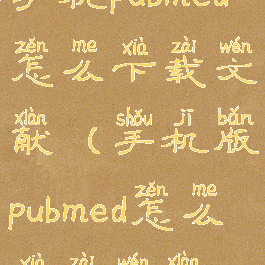 手机pubmed
zěn me xià zài wén
怎么下载文
xiàn shǒu jī bǎn
献(手机版
zěn me
pubmed怎么
xià zài wén xiàn